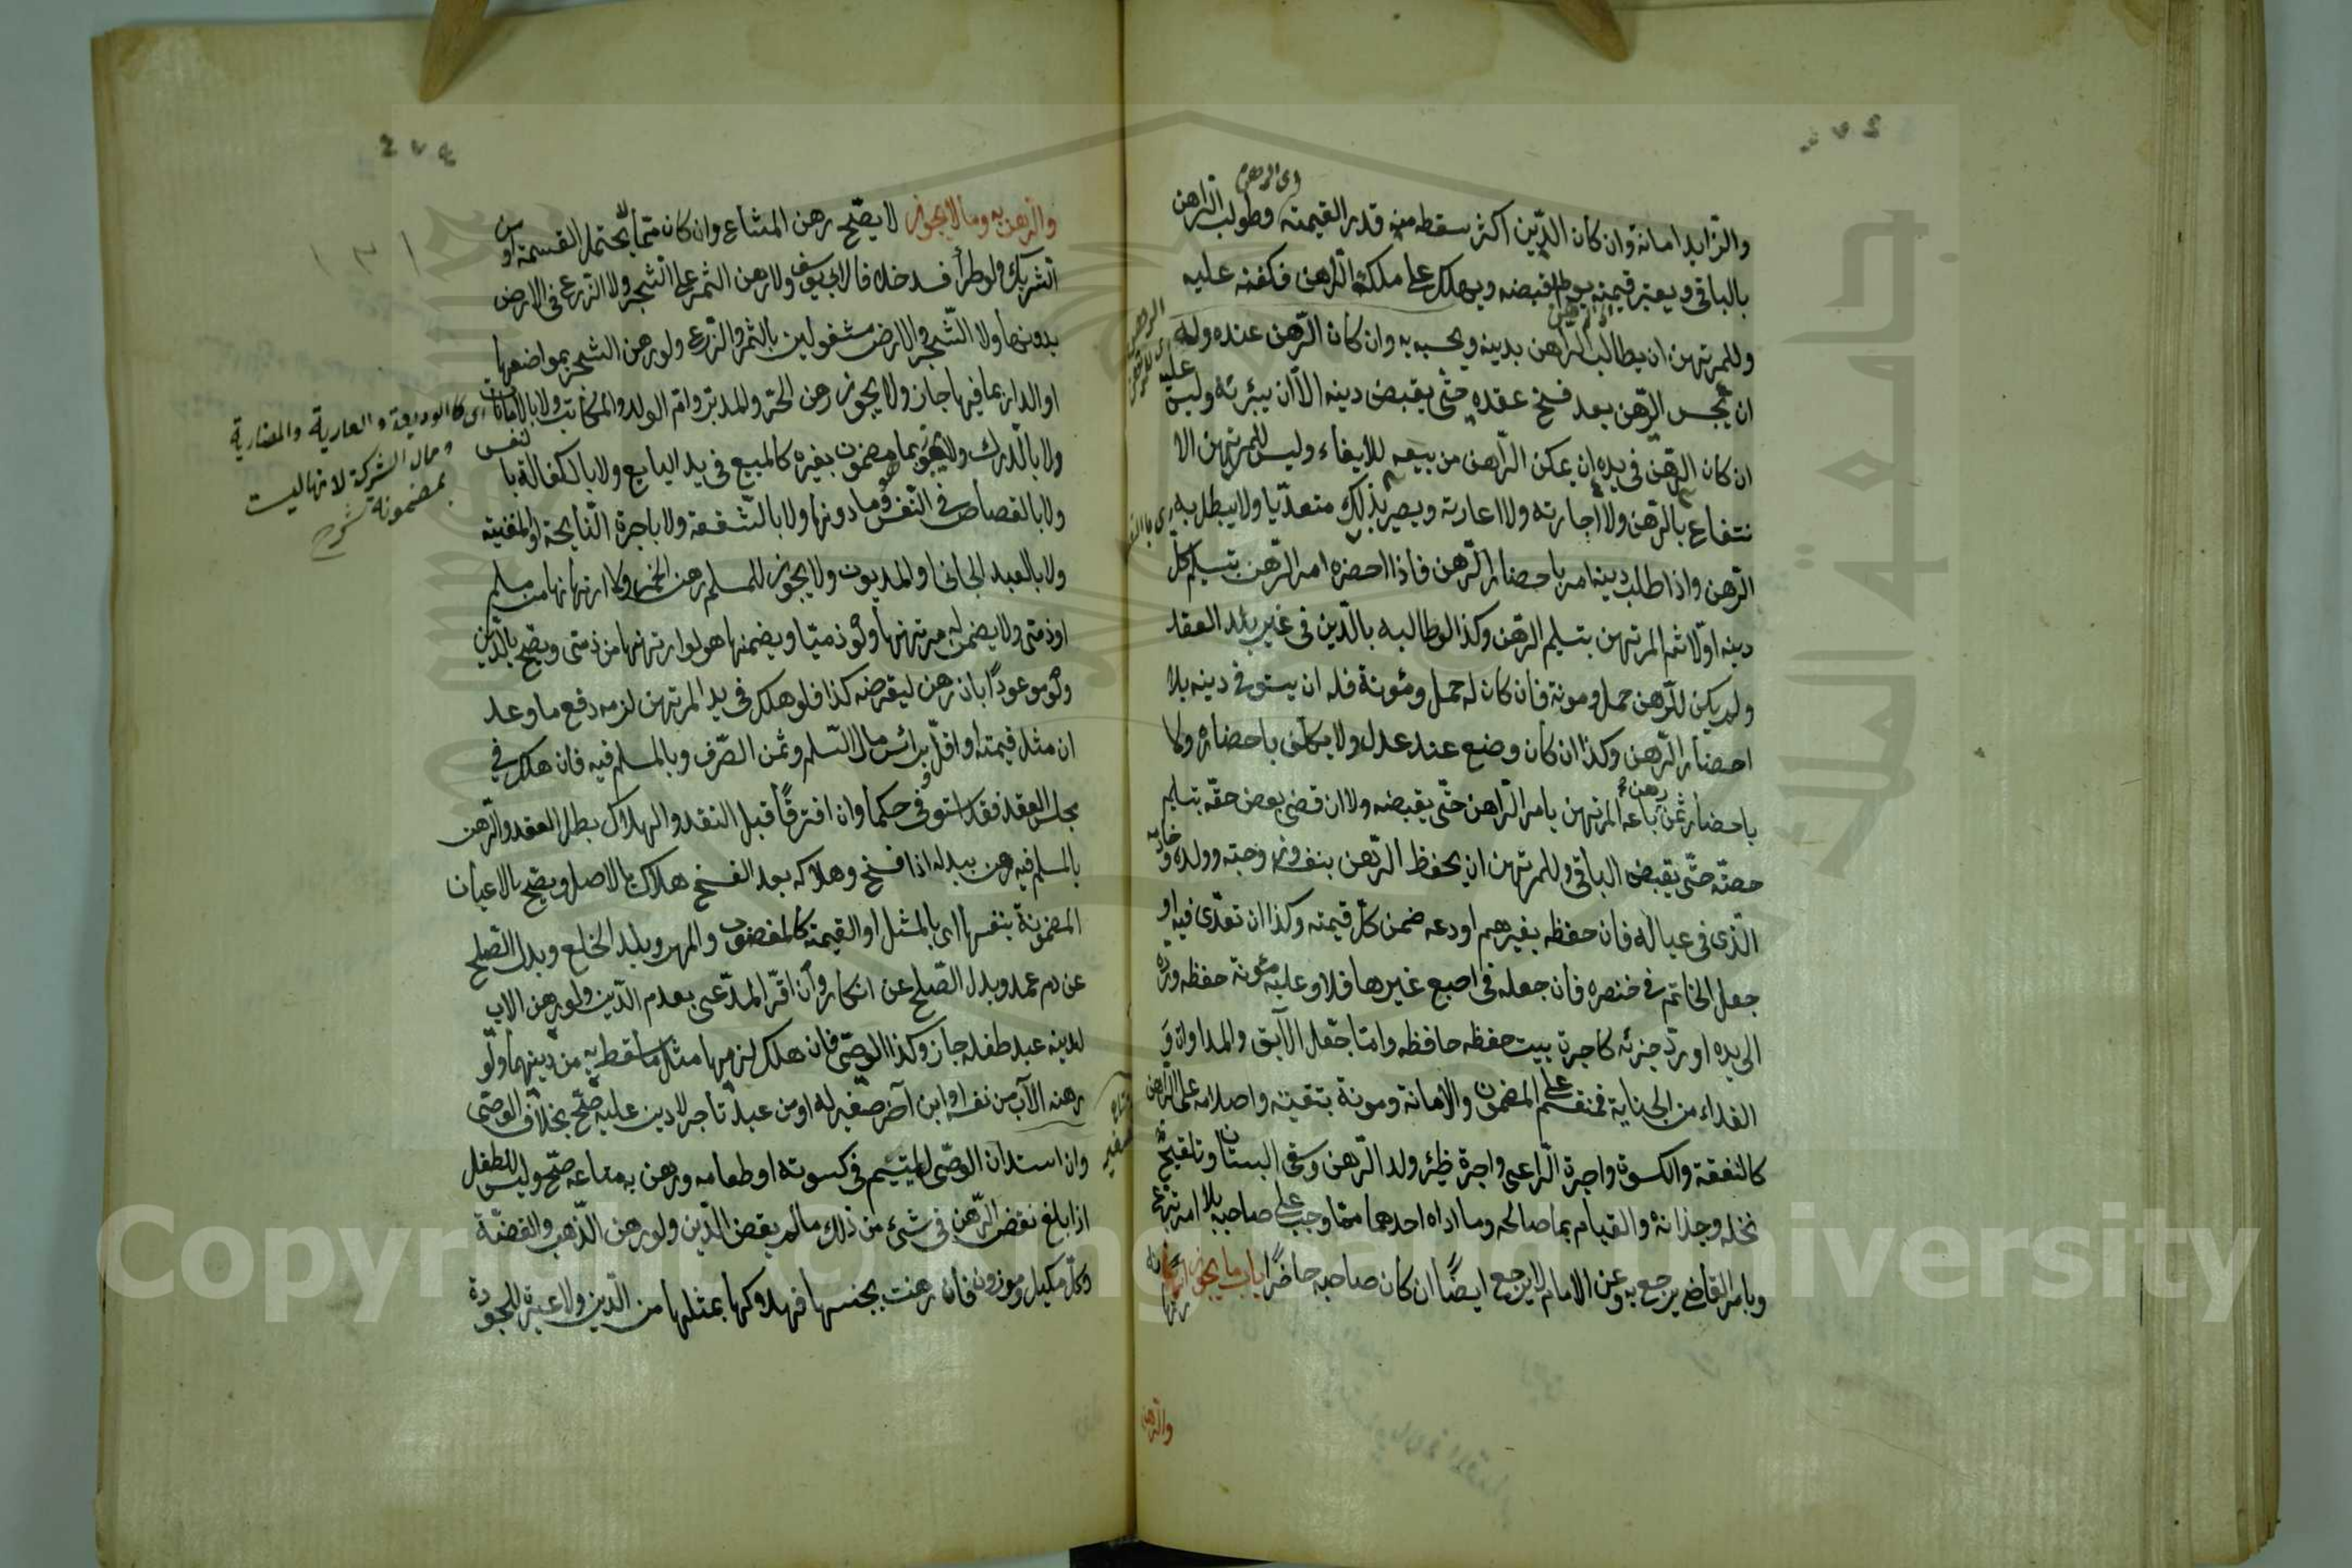 والزايد امانة وان كان الدين اكثر سقط منه قدر القيمة وطولب الراهن
اى الرهن
بالباقى ويعتبر قيمته يوم قبضه ويهلك على ملك الراهن فكفنه عليه
وللمرتهن ان يطالب الراهن بدينه ويحبسه به وان كان الرهن عنده وله
ان يحبس الرهن بعد فسخ عقده حتى يقبض دينه الا ان يبرئه وليس عليه
ان كان الرهن فى يده ان يمكن الراهن من بيعه للايفاء وليس للمرتهن الا
نتفاع بالرهن ولا اجارته ولا اعارته ويصير بذلك متعديا ولا يبطل به
الرهن واذا طلب دينه امر باحضار الرهن فاذا احضره امر الرهن بتسليم كل
دينه اولا ثم المرتهن بتسليم الرهن وكذا لو طالبه بالدين فى غير بلد العقد
ولم يكن للرهن حمل ومونة فان كان له حمل ومئونة فله ان يستوفى دينه بلا
احضار الرهن وكذا ان كان وضع عند عدل ولا يكلف باحضاره ولا
باحضار ثمن رهن باعه المرتهن بامر الراهن حتى يقبضه ولا ان قضى بعض حقه بتسليم
حصته حتى يقبض الباقى وللمرتهن ان يحفظ الرهن بنفسه وزوجته وولده وخادمه
الذى فى عياله فان حفظه بغيرهم او دعه ضمن كل قيمته وكذا ان تعدى فيه او
جعل الخاتم فى خنصره فان جعله فى اصبع غيرها فلا وعليه مئونة حفظه ورده
الى يده او رد جزئه كاجرة بيت حفظه حافظه واما جعل الآبق والمداواة و
الفداء من الجناية فمنقسم على المضمون والامانة ومونة تبقيته واصلاحه على الراهن
كالنفقة والكسوة واجرة الراعى واجرة ظئر ولد الرهن وسقى البستان وتلقيح
نخله وجذاذه والقيام بمصالحه وما اداه احدهما مما وجب على صاحبه بلا امر تبرع
وبامر القاضى يرجع به وعن الامام لا يرجع ايضا ان كان صاحبه حاضرا باب ما يجوز ارتهانه
والرهن
والرهن به وما لا يجوز لا يصح رهن المشاع وان كان مما لا يحتمل القسمة او من
الشريك ولو طرأ فسد خلافا لابى يوسف ولا رهن الثمر على الشجر ولا الزرع فى الارض
بدونها ولا الشجر والارض مشغولين بالثمر والزرع ولو رهن الشجر بمواضعها
او الدار بما فيها جاز ولا يجوز رهن الحر والمدبر وام الولد والمكاتب ولا بالامانات
اى كالوديعة والعارية والمضاربة
ومال الشركة لانها ليست
بمضمونة شرح
ولا بالدرك ولا بما هو مضمون بغيره كالمبيع فى يد البايع ولا بالكفالة بالنفس
ولا بالقصاص فى النفس وما دونها ولا بالشفعة ولا باجرة النايحة او المغنية
ولا بالعبد الجانى او المديون ولا يجوز للمسلم رهن الخمر ولا ارتهانها من مسلم
او ذمى ولا يضمن له مرتهنها ولو ذميا ويضمنها هو لو ارتهنها من ذمى ويصح بالدين
ولو موعودا بان رهن ليقرضه كذا فلو هلك فى يد المرتهن لزمه دفع ما وعد
ان مثل قيمته او اقل برأس مال السلم وثمن الصرف وبالمسلم فيه فان هلك فى
مجلس العقد فقد استوفى حكما وان افترقا قبل النقد والهلاك بطل العقد والرهن
بالمسلم فيه رهن ببدله اذا فسخ وهلاكه بعد الفسخ هلاك بالاصل ويصح بالاعيان
المضمونة بنفسها اى بالمثل او القيمة كالمغصوب والمهر وبدل الخلع وبدل الصلح
عن دم عمد وبدل الصلح عن انكار وان اقر المدعى بعدم الدين ولو رهن الاب
لدينه عبد طفله جاز وكذا الوصى فان هلك لزمهما مثل ما سقط به من دينهما ولو
رهنه الاب من نفسه او ابن آخر صغير له او من عبد تاجر لا دين عليه صح بخلاف الوصى
وان استدان الوصى لليتيم فى كسوته او طعامه ورهن به متاعه صح وليس للطفل
اذا بلغ نقض الرهن فى شىء من ذلك ما لم يقض الدين ولو رهن الذهب والفضة
وكل مكيل وموزون فان رهنت بجنسها فهلاكها بمثلها من الدين ولا عبرة للجودة
Copyright © King Saud University
جامعة الملك سعود